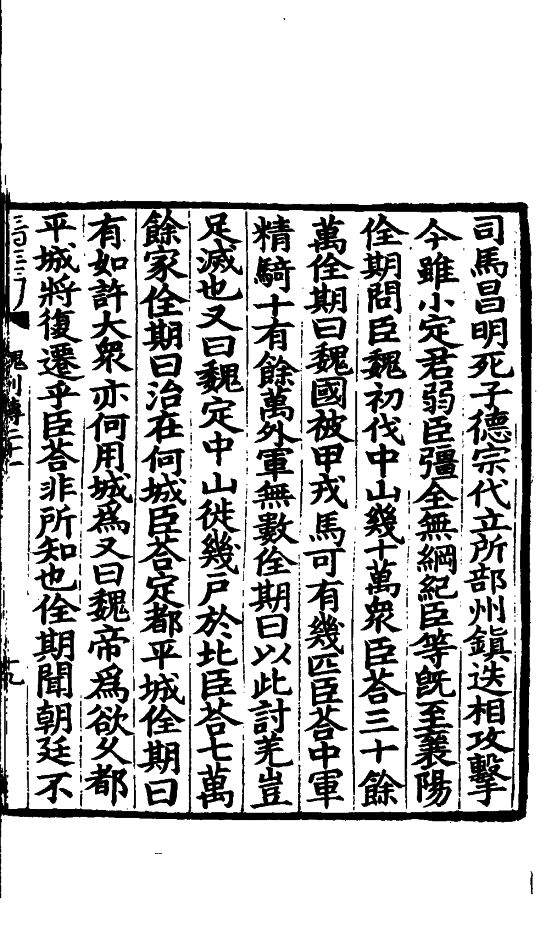 司馬昌明死子德宗代立所部州鎮迭相攻擊
今雖小定君弱臣彊全無綱紀臣等旣至襄陽
佺期問臣魏初伐中山幾十萬衆臣荅三十餘
萬佺期曰魏國被甲戎馬可有幾匹臣荅中軍
精騎十有餘萬外軍無數佺期曰以此討羌豈
足滅也又曰魏定中山徙幾戸於北臣荅七萬
餘家佺期曰治在何城臣荅定都平城佺期曰
有如許大衆亦何用城爲又曰魏帝爲欲久都
平城將復遷乎臣荅非所知也佺期聞朝廷不